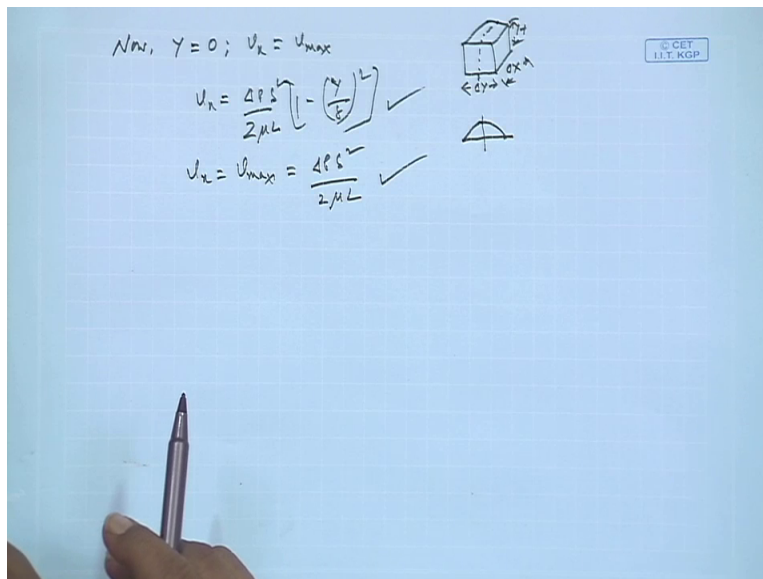 Now, Y = 0 ; Vx = Vmax
Vx = ΔPδ²/2μL [1 - (y/δ)²] ✓
Vx = Vmax = ΔPδ²/2μL ✓
ΔX
← ΔY →
© CET
I.I.T. KGP